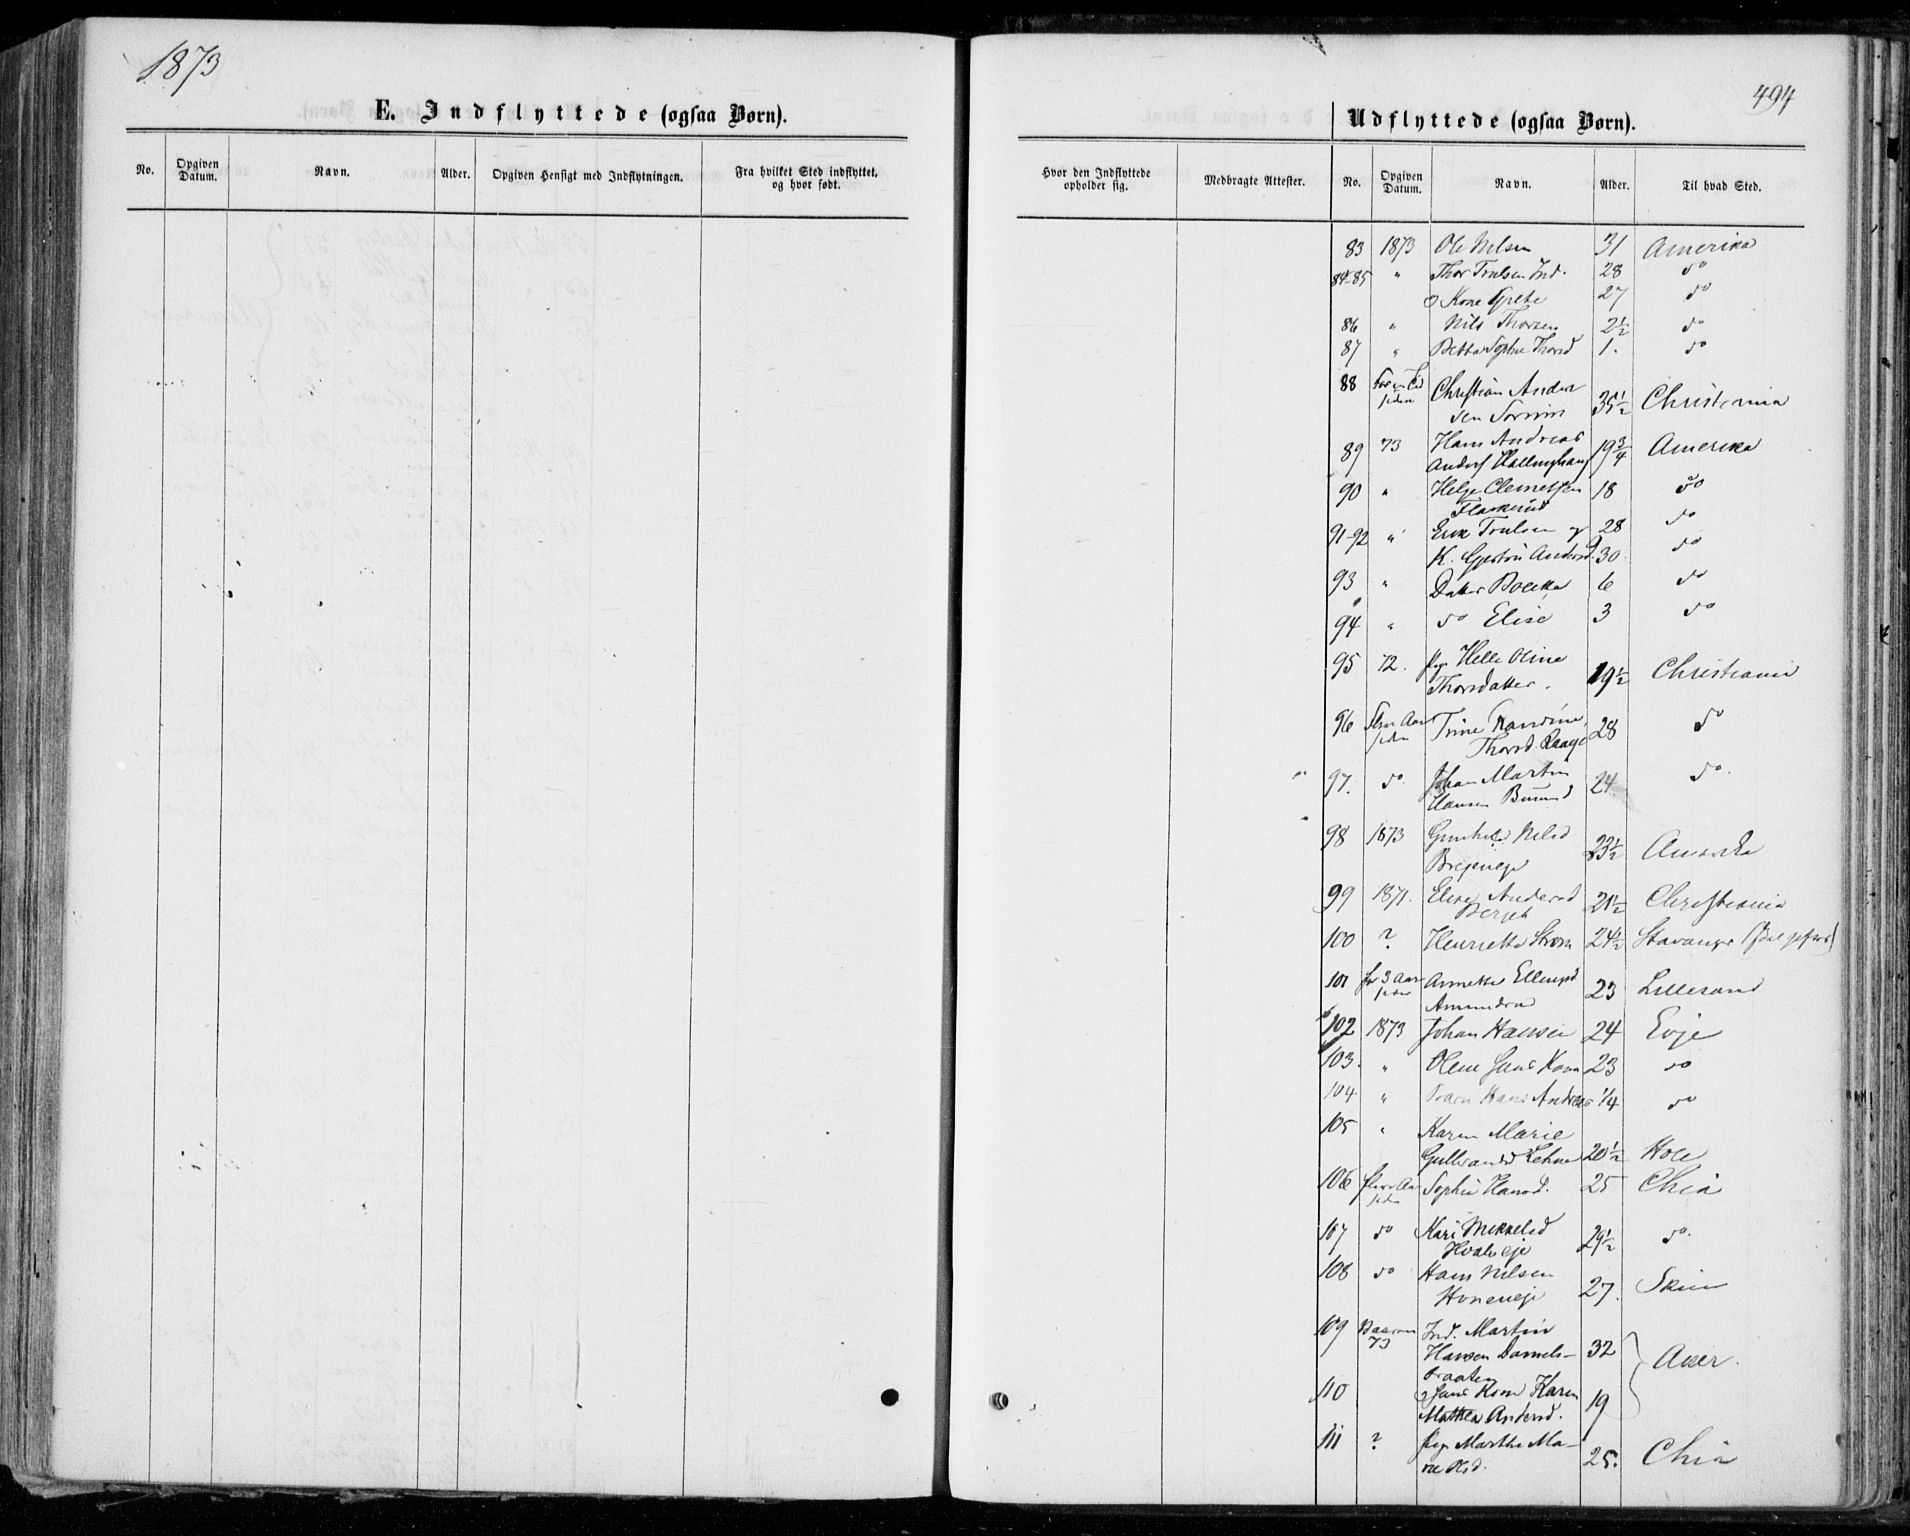 1873
494
E. Indflyttede (ogsaa Børn).
Udflyttede (ogsaa Børn).
No. Opgiven Datum. Navn. Alder. Opgiven Hensigt med Indflytningen. Fra hvilket Sted indflyttet, og hvor født.
Hvor den Indflyttede opholder sig. Medbragte Attester. No. Opgiven Datum. Navn. Alder. Til hvad Sted.
83 1873 Ole Nilsen 31 Amerika
84-85 " Thor Trulsen Ind. 28 do
o Kone Grete 27 do
86 " Nils Thorsen 2½ do
87 " Sophie Thorsd 1. do
88 siden Christian Ander
sen 35½ Christiania
89 73 Hans Andreas
Anders 19¾ Amerika
90 " Helge Clemetsen 18 do
Flaskerud
91-92 " Erik Trulsen og 28 do
K. Andersd. 30. do
93 " Datter 6 do
94 " do Elise 3 do
95 72. pige Helle Oline
Thorsdatter. 19½ Christiania
96 Flere Aar Trine Randine
siden Thorsd. Raage 28 do
97. do. Johan Martin
Hansen 24 do.
98 1873 Gunhild Nilsd
23½ Amerika
99 1871. Elise Andersd
Berget 21½ Christiania
100 ? Henriette Strøm 24½ Stavanger
101 for 3 Aar Annette Ellingsd
siden 23 Lillesand
102 1873 Johan Hansen 24 Evje
103. " Olene hans Kone 23 do
104 " Barn Hans Andreas ¼ do
105 " Karen Marie
20½ Hole
106 flere Aar Sophie Hansd. 25 Chia
siden
107 do Kari Mikkelsd
29½ do.
108 do Hans Nilsen
27.
109 73 Ind. Martin
Hansen Daniels-
braaten 32 Aker.
110 o hans Kone Karen
Mathea Andersd. 19
111 ? pige Marthe Ma-
rie Olsd. 25. Chia